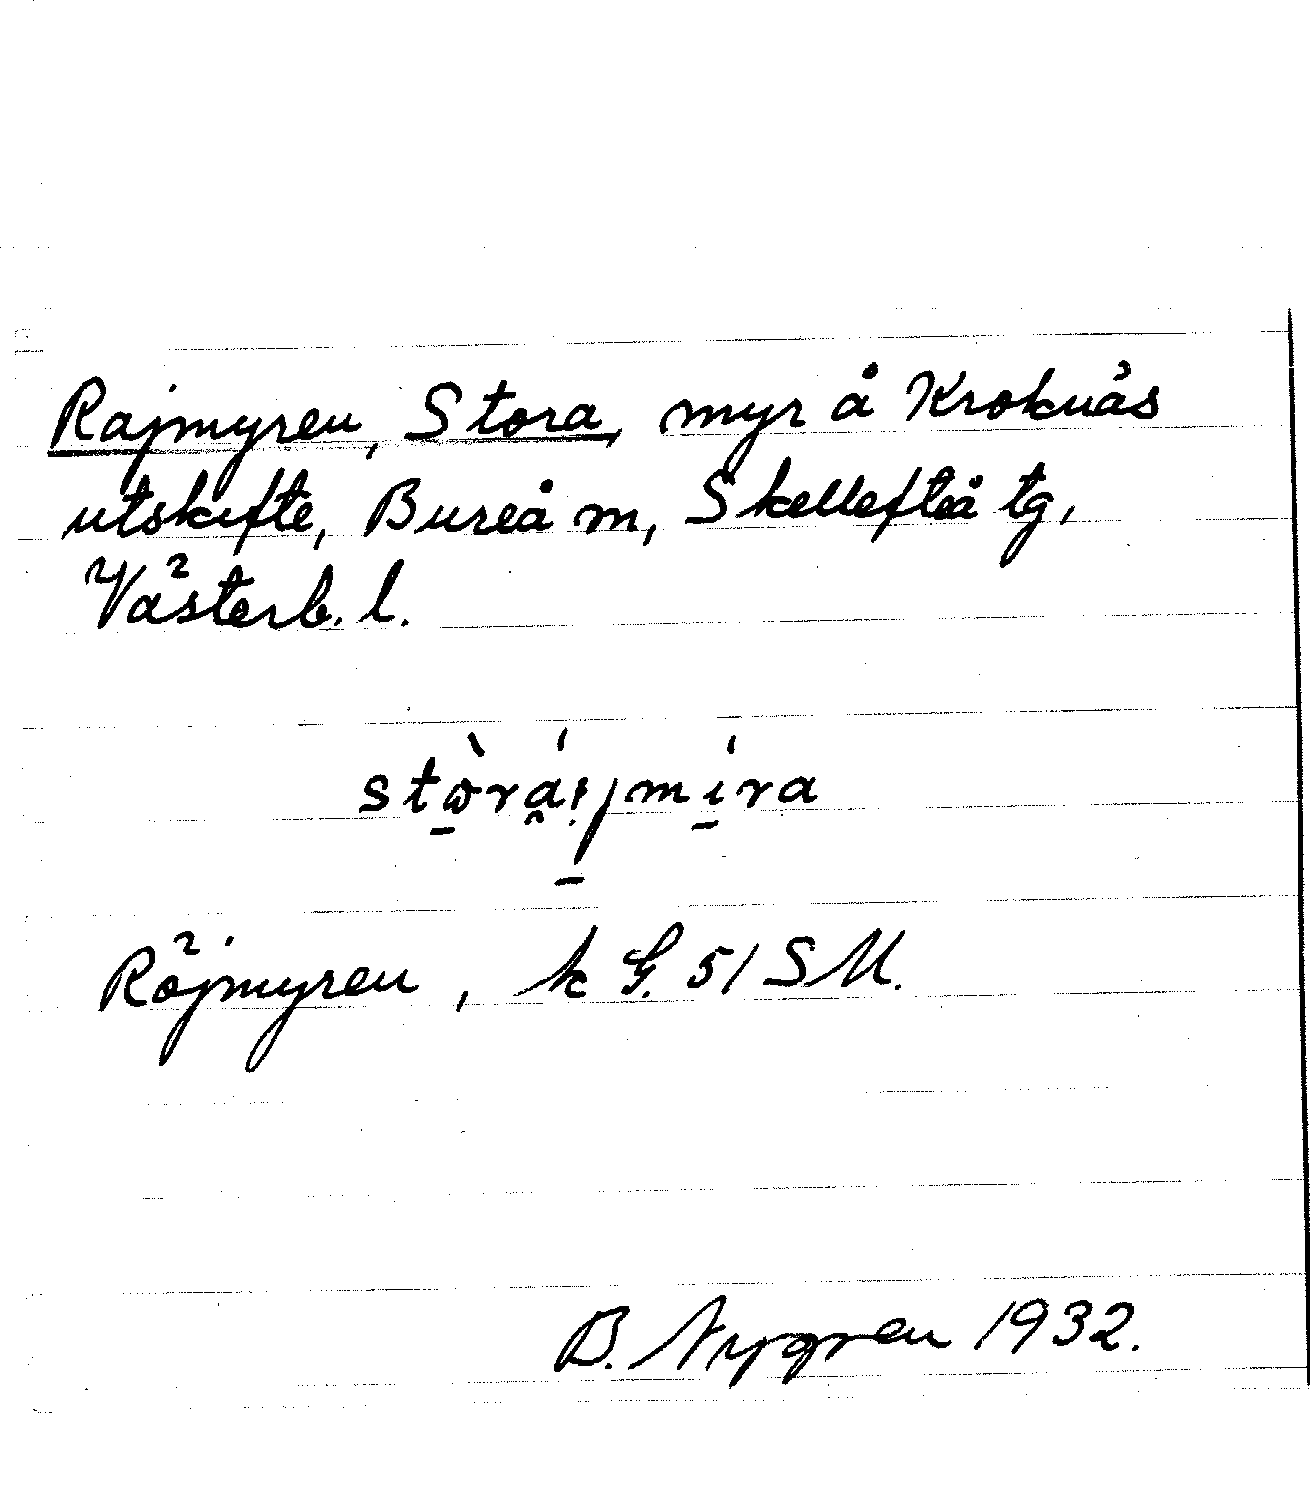 Rajmyren, Stora, myr å Kroknäs
utskifte, Bureå m, Skellefteå tg,
Västerb. l.
stɷ̀rái̭jmíra
Röjmyren, k G. 51 SM.
B. Nygren 1932.